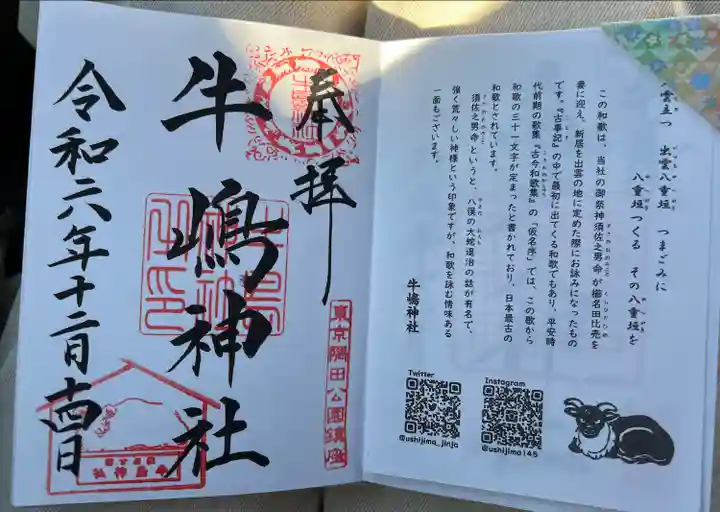 八雲立つ 出雲八重垣 つまごみに
八重垣つくる その八重垣を
この和歌は、当社の御祭神須佐之男命が櫛名田比売を
妻に迎え、新居を出雲の地に定めた際にお詠みになったもの
です。『古事記』の中で最初に出てくる和歌でもあり、平安時
代前期の歌集『古今和歌集』の「仮名序」では、この歌から
和歌の三十一文字が定まったと書かれており、日本最古の
和歌とされています。
須佐之男命というと、八俣の大蛇退治の話が有名で、
強く荒々しい神様という印象ですが、和歌を詠む情味ある
一面もございます。
牛嶋神社
Twitter
@ushijima_jinja
Instagram
@ushijima145
奉拝
東京隅田公園鎮座
牛嶋神社
令和六年十二月十四日